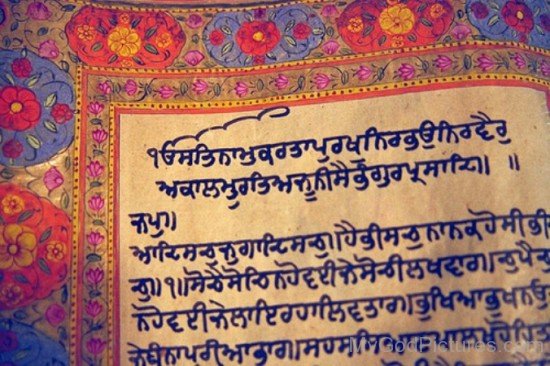 ੴਸਤਿਨਾਮੁਕਰਤਾਪੁਰਖੁਨਿਰਭਉਨਿਰਵੈਰੁ
ਅਕਾਲਮੂਰਤਿਅਜੂਨੀਸੈਭੰਗੁਰਪ੍ਰਸਾਦਿ॥ ॥
ਜਪੁ॥
ਆਦਿਸਚੁਜੁਗਾਦਿਸਚੁ॥ਹੈਭੀਸਚੁਨਾਨਕਹੋਸੀਭੀ
ਚੁ॥੧॥ਸੋਚੈਸੋਚਿਨਹੋਵਈਜੇਸੋਚੀਲਖਵਾਰ॥ਚੁਪੈਚੁ
ਨਹੋਵਈਜੇਲਾਇਰਹਾਲਿਵਤਾਰ॥ਭੁਖਿਆਭੁਖਨਉ
ਜੇਬੰਨਾਪੁਰੀਆਭਾਰ॥ਸਹਸ
MyGodPictures.com